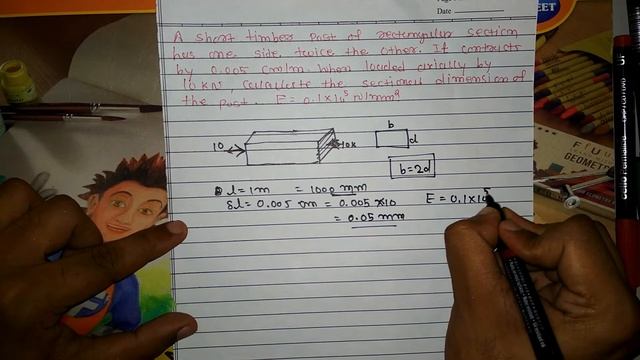 Date
EET
A short timber post of rectangular section
has one side twice the other. If contracts
by 0.005 cm/m when loaded axially by
10 KN, Calculate the sectional dimension of
the post. E = 0.1×10⁵ N/mm²
b
10
10K
d
b=2d
l=1m = 1000 mm
δl = 0.005 cm = 0.005 × 10
E = 0.1×10⁵
= 0.05 mm
GEOMETR